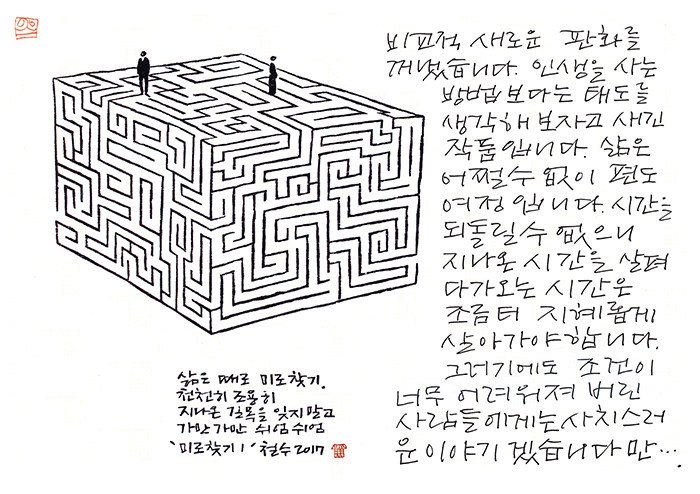 비교적 새로운 판화를
꺼냈습니다. 인생을 사는
방법보다는 태도를
생각해 보자고 새긴
작품입니다. 삶은
어쩔수 없이 편도
여정입니다. 시간을
되돌릴수 없으니
지나온 시간을 살펴
다가오는 시간은
조금 더 지혜롭게
살아가야 합니다.
그러기에도 조건이
너무 어려워져 버린
사람들에게는 사치스러
운 이야기겠습니다만…
삶은 때로 미로찾기.
천천히 조용히
지나온 길목을 잊지말고
가만가만 쉬엄쉬엄
'미로찾기 1' 철수 2017